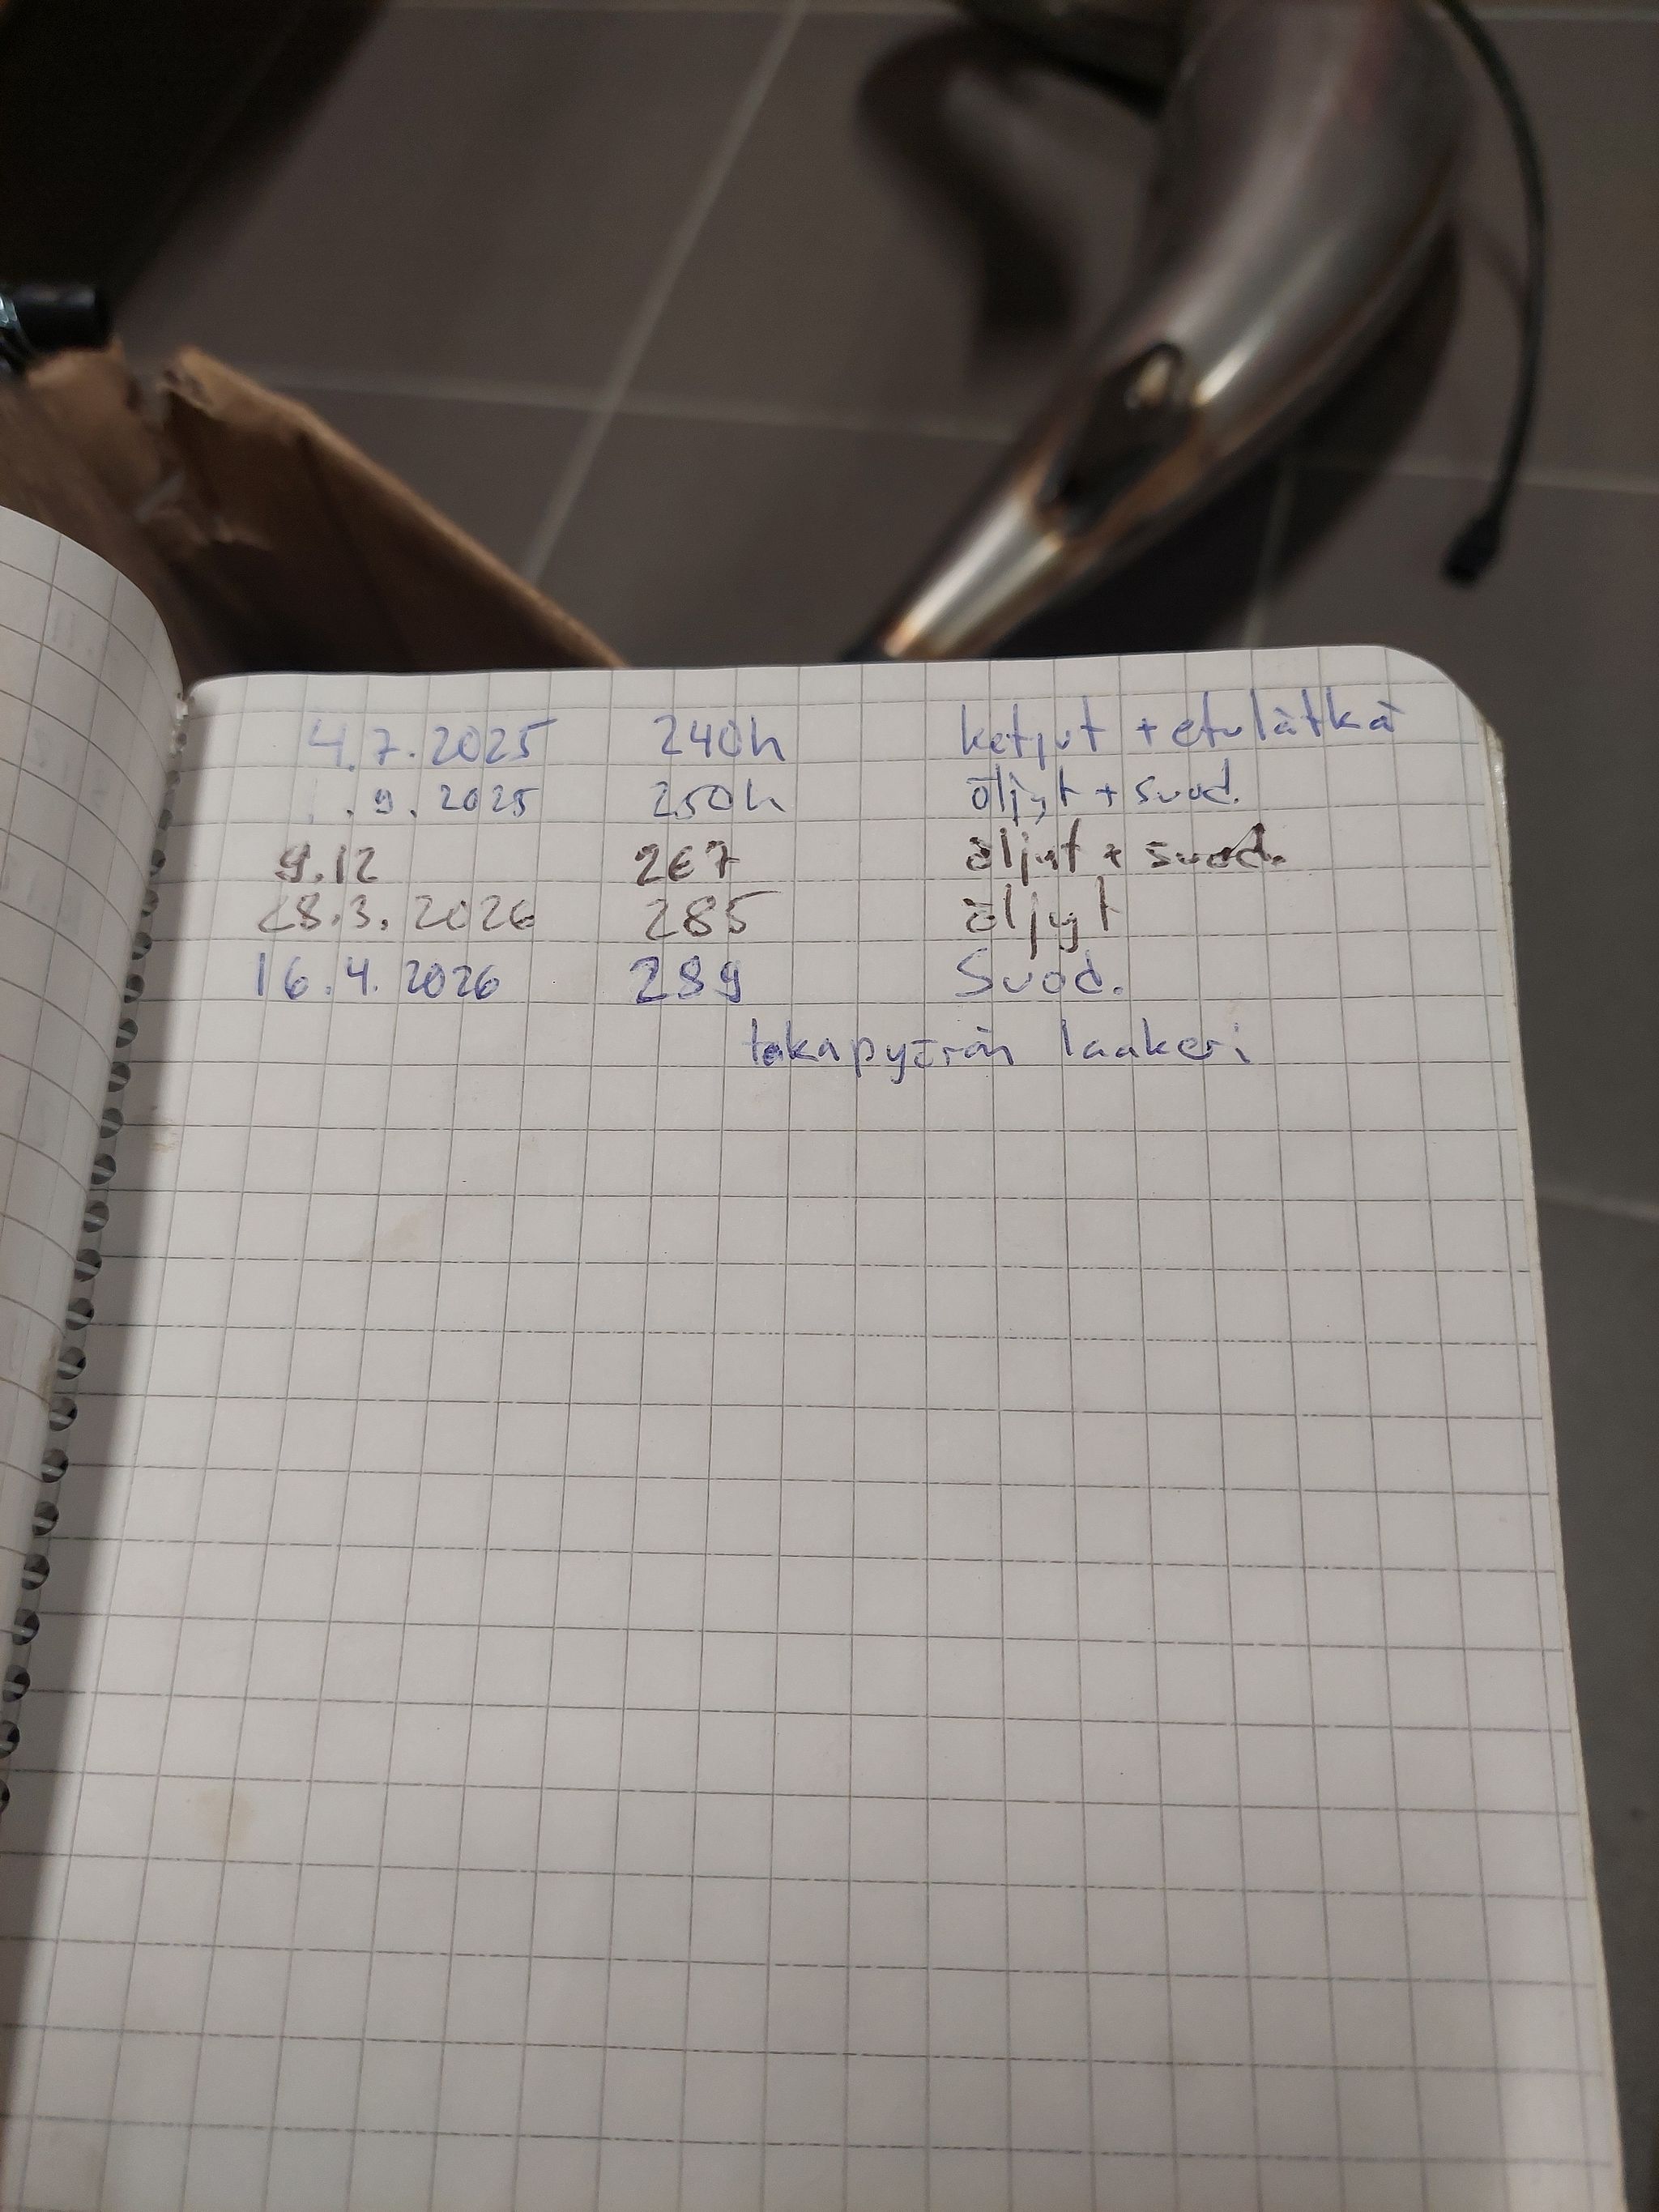 4.7.2025 240h ketjut + etulätkä
.9.2025 250h öljyt + suod.
9.12 267 öljyt + suod.
28.3.2026 285 öljyt
16.4.2026 289 Suod.
takapyörän laakeri